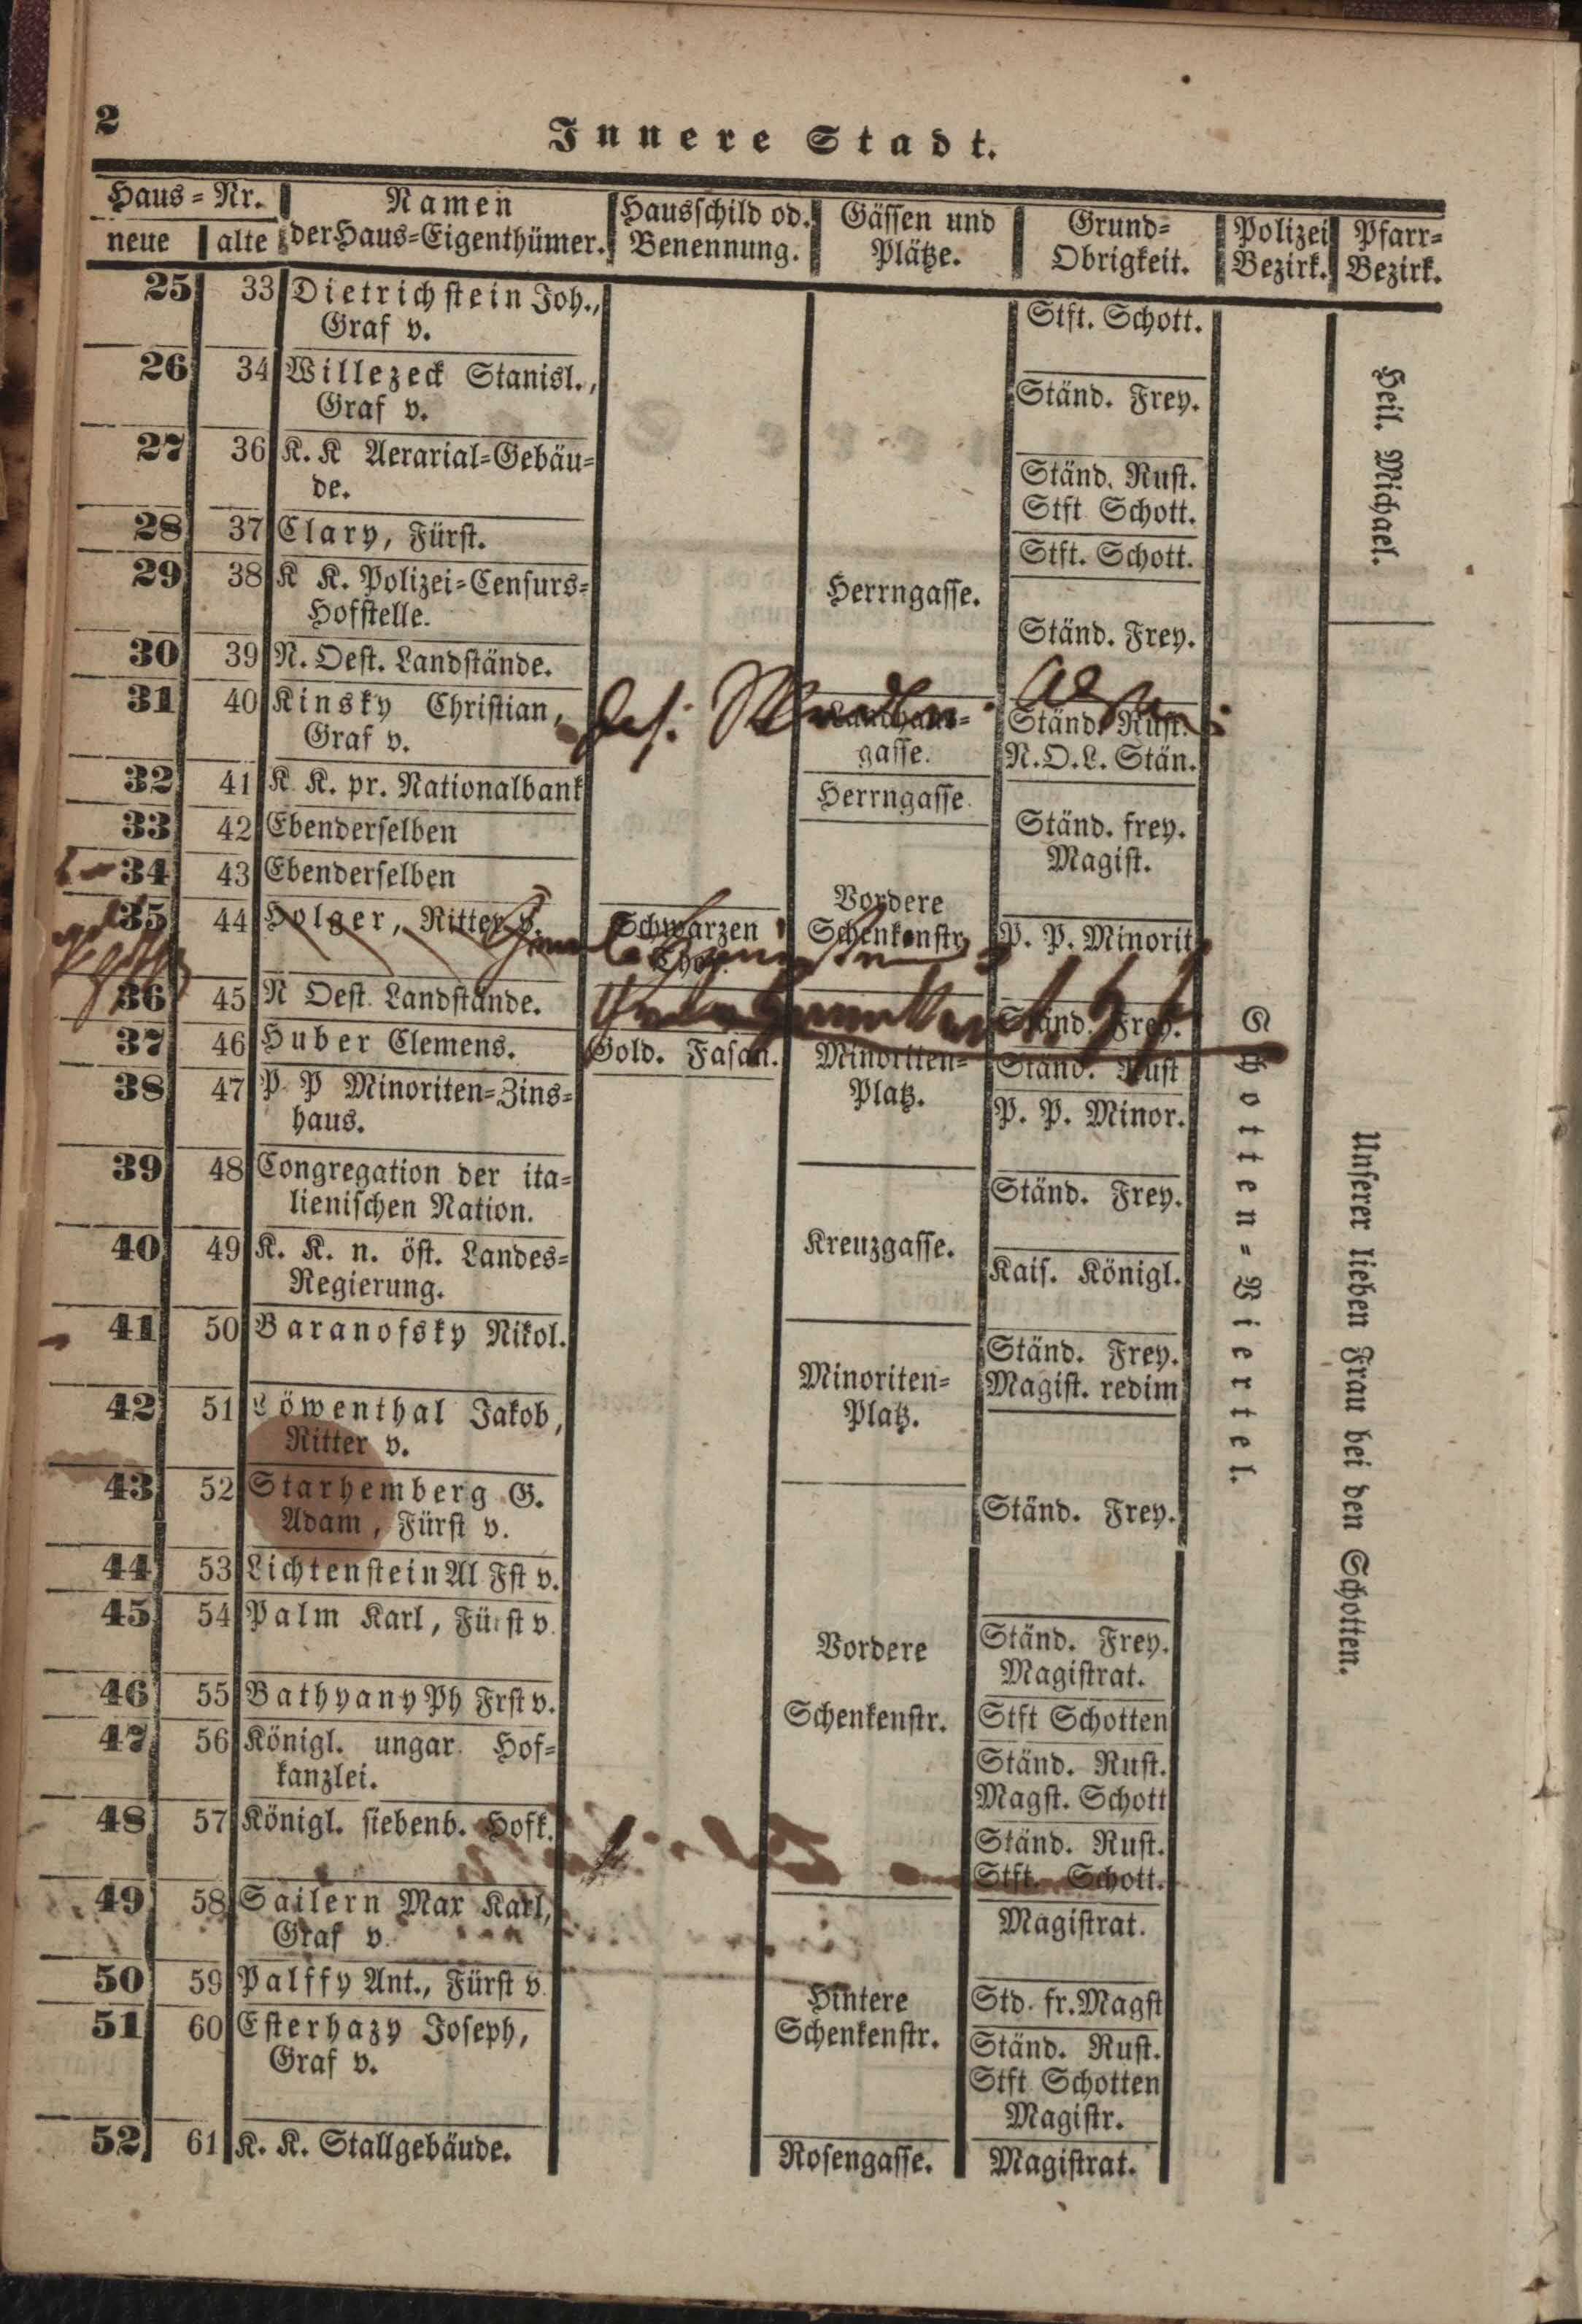 2
Innere Stadt.
Haus-Nr. Namen Hausschild od. Gässen und Grund- Polizei Pfarr-
neue alte der Haus-Eigenthümer. Benennung. Plätze. Obrigkeit. Bezirk. Bezirk.
25 33 Dietrichstein Joh., Stft. Schott.
Graf v.
26 34 Willezeck Stanisl., Ständ. Frey.
Graf v.
27 36 K. K Aerarial-Gebäu- Ständ. Rust.
de. Stft Schott.
28 37 Clary, Fürst. Stft. Schott.
29 38 K K. Polizei-Censurs- Herrngasse.
Hofstelle. Ständ. Frey.
30 39 N. Oest. Landstände.
31 40 Kinsky Christian, Landhaus- Ständ. Rust.
Graf v. gasse. N.O.L. Stän.
32 41 K K. pr. Nationalbank Herrngasse.
33 42 Ebenderselben Ständ. frey.
34 43 Ebenderselben Magist.
Vordere
35 44 Holger, Ritter v. Schwarzen Schenkenstr. P. P. Minorit.
36 45 N Oest. Landstände. Ständ. Frey.
37 46 Huber Clemens. Gold. Fasan. Minoriten- Ständ. Rust
38 47 P P Minoriten-Zins- Platz. P. P. Minor.
haus.
39 48 Congregation der ita- Ständ. Frey.
lienischen Nation.
40 49 K. K. n. öst. Landes- Kreuzgasse. Kais. Königl.
Regierung.
41 50 Baranofsky Nikol. Ständ. Frey.
Minoriten- Magist. redim
42 51 Löwenthal Jakob, Platz.
Ritter v.
43 52 Starhemberg G. Ständ. Frey.
Adam, Fürst v.
44 53 Lichtenstein Al Fst v.
45 54 Palm Karl, Fürst v. Vordere Ständ. Frey.
Magistrat.
46 55 Bathyany Ph Frst v. Schenkenstr. Stft Schotten
47 56 Königl. ungar. Hof- Ständ. Rust.
kanzlei. Magst. Schott
48 57 Königl. siebenb. Hofk. Ständ. Rust.
Stft. Schott.
49 58 Sailern Max Karl, Magistrat.
Graf v.
50 59 Palffy Ant., Fürst v. Hintere Std. fr. Magst
51 60 Esterhazy Joseph, Schenkenstr. Ständ. Rust.
Graf v. Stft Schotten
Magistr.
52 61 K. K. Stallgebäude. Rosengasse. Magistrat.
Schotten-Viertel.
Heil. Michael.
Unserer lieben Frau bei den Schotten.